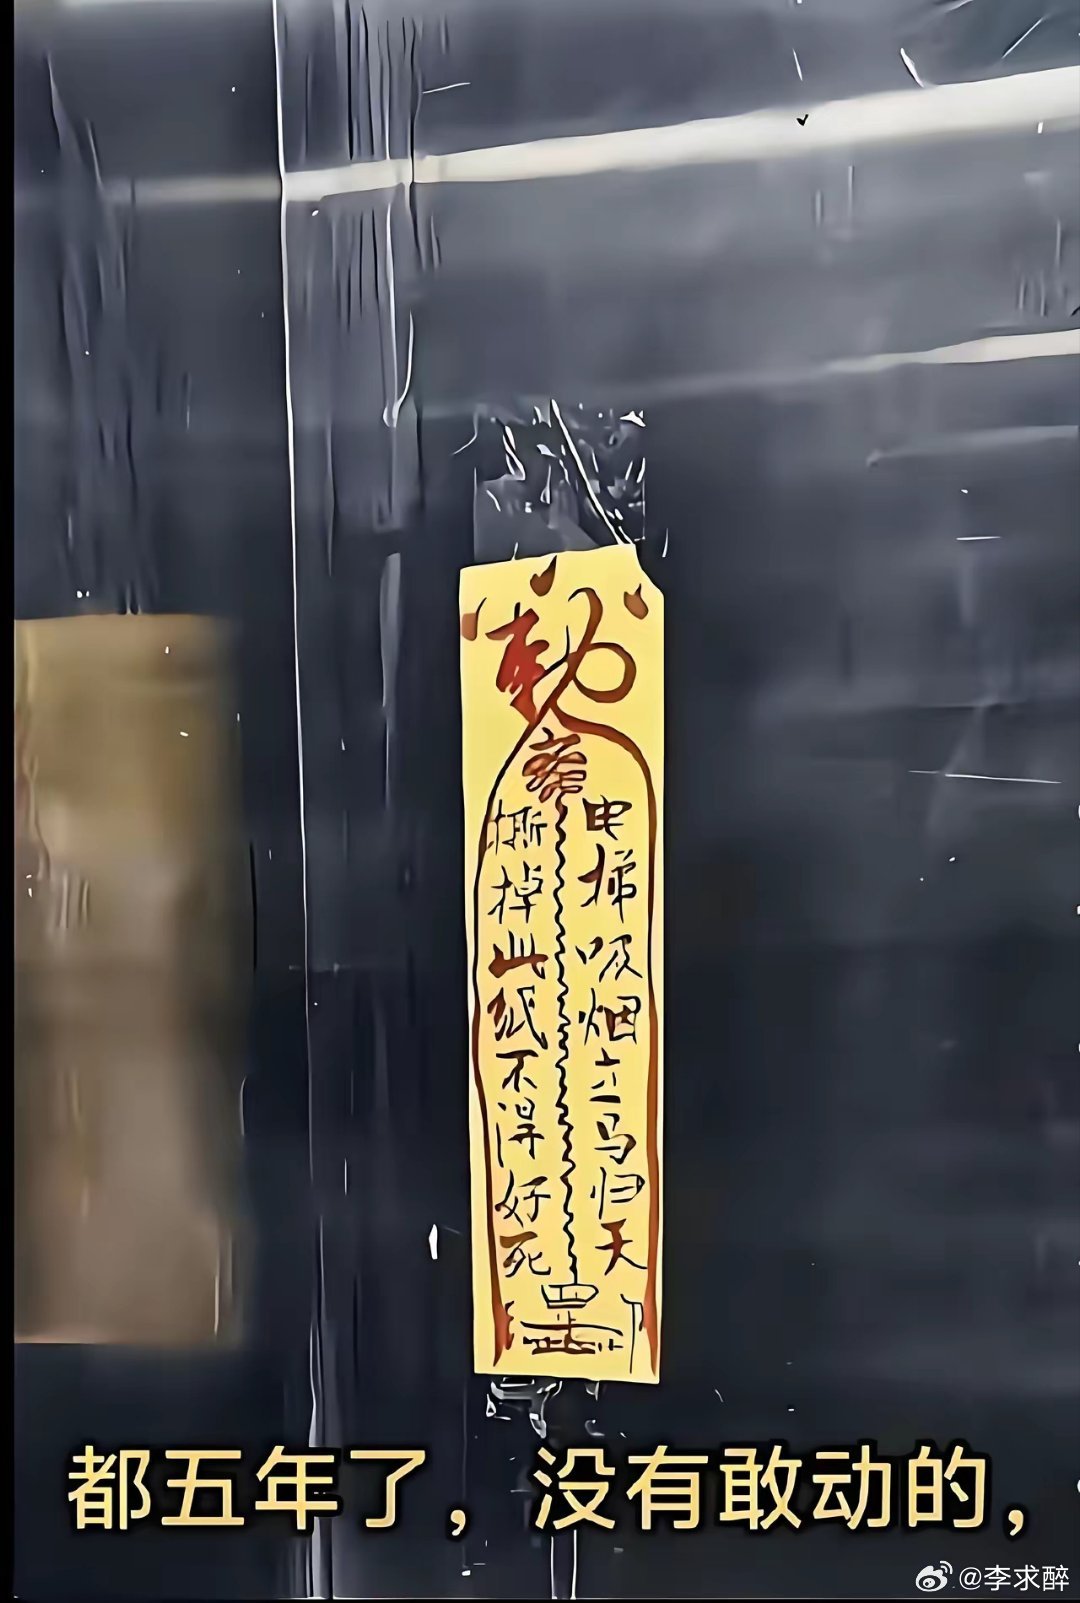 敕
电梯吸烟立马归天
撕掉此纸不得好死
都五年了，没有敢动的，
@李求醉